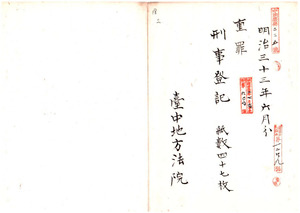 明治三十三年六月分
重罪
刑事登記 紙數四十七枚
臺中地方法院